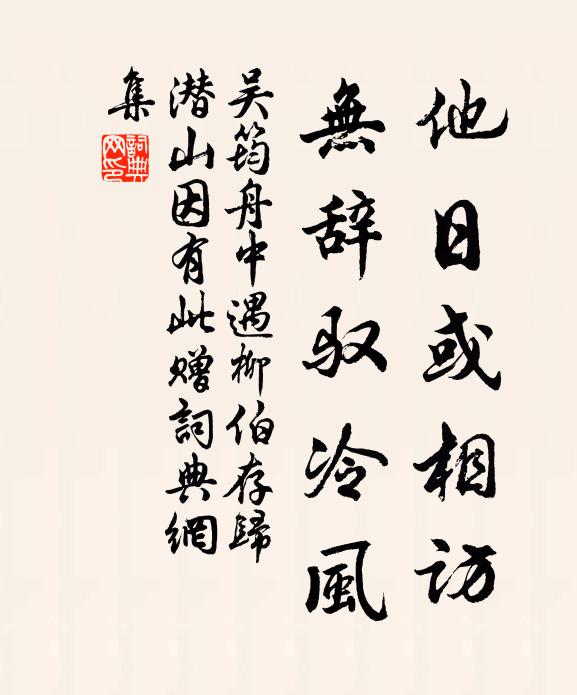 他日或相访
無辞驭冷風
吴筠舟中遇柳伯存歸
潜山因有此赠詞典網
集
詞典網印